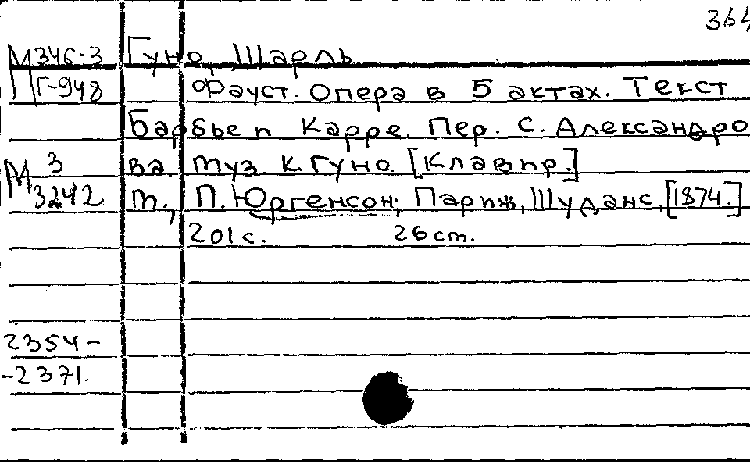 364
М 346-3 Гуно, Шарль
Г-948 Фауст. Опера в 5 актах. Текст
Барбье и Карре. Пер. С. Александро
М 3 ва. Муз. К. Гуно. [Клавир.]
3242 М., П. Юргенсон; Париж, Шуданс, [1874.]
201 с. 26 см.
2354-
-2371.